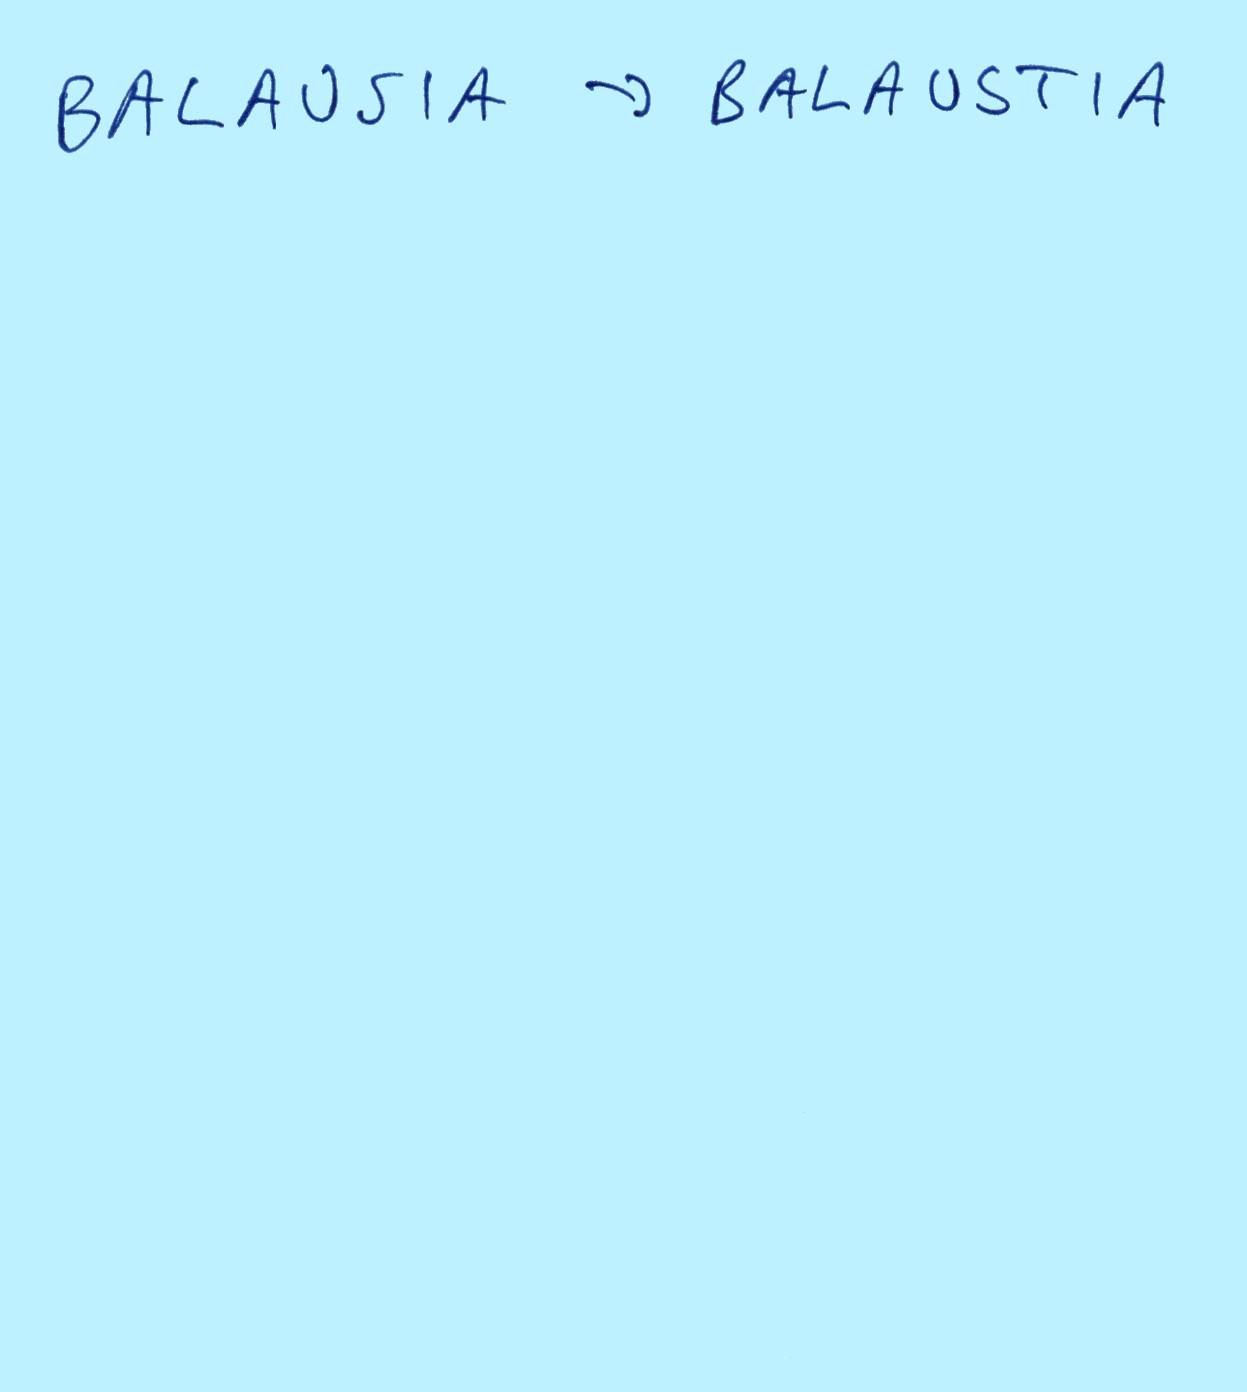 BALAUSIA → BALAUSTIA